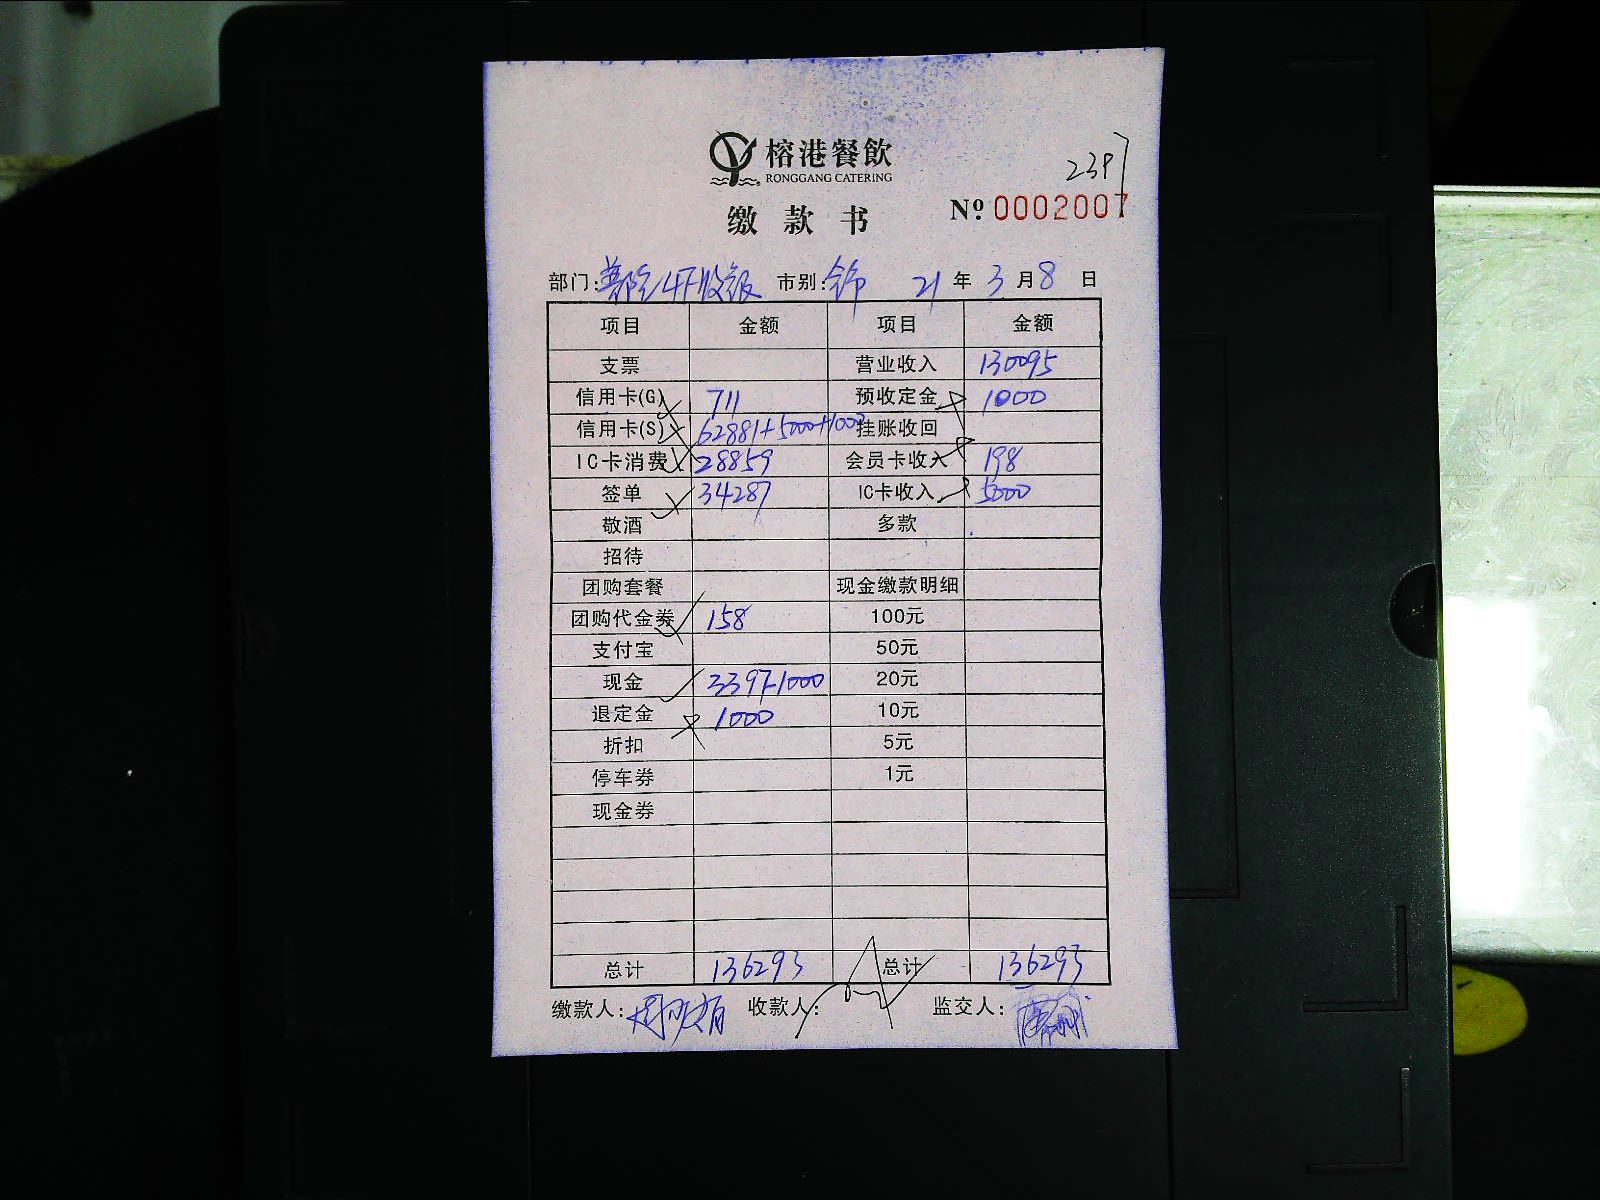 榕港餐飲
RONGGANG CATERING
239
缴款书 № 0002007
部门: 4F收银 市别: 21年3月8日
项目 金额 项目 金额
支票 营业收入 130095
信用卡(G) 711 预收定金 1000
信用卡(S) 62881+5000+1000 挂账收回
IC卡消费 28859 会员卡收入 198
签单 34287 IC卡收入 5000
敬酒 多款
招待
团购套餐 现金缴款明细
团购代金券 158 100元
支付宝 50元
现金 3397-1000 20元
退定金 1000 10元
折扣 5元
停车券 1元
现金券
总计 136293 总计 136293
缴款人: 收款人: 监交人: